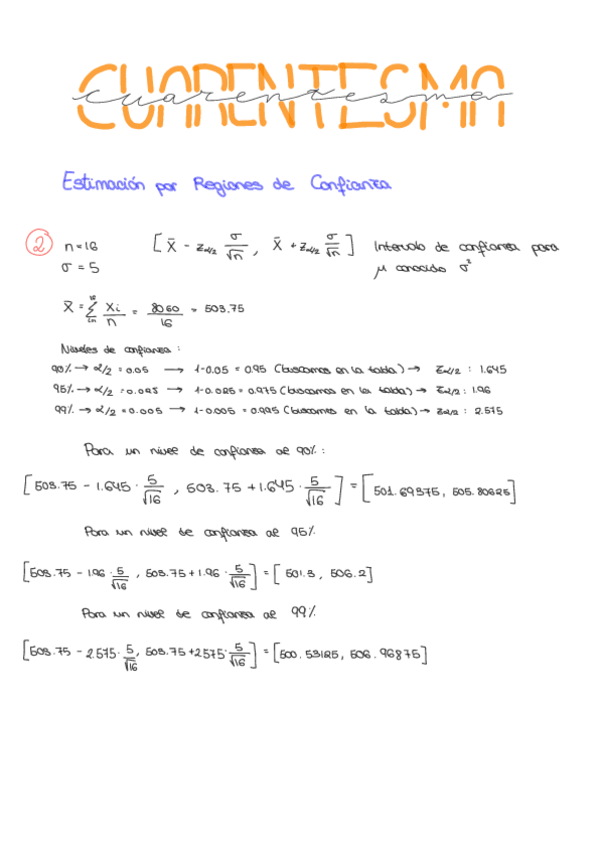 CUARENTESMA
cuarentesma
Estimación por Regiones de Confianza
2 n = 16 [ X̄ - z_{α/2} σ/√n , X̄ + z_{α/2} σ/√n ] Intervalo de confianza para
σ = 5 μ conocido σ²
X̄ = Σ Xi/n = 8060/16 = 503.75
Niveles de confianza :
90% → α/2 = 0.05 → 1-0.05 = 0.95 (buscamos en la tabla) → z_{α/2} : 1.645
95% → α/2 = 0.025 → 1-0.025 = 0.975 (buscamos en la tabla) → z_{α/2} : 1.96
99% → α/2 = 0.005 → 1-0.005 = 0.995 (buscamos en la tabla) → z_{α/2} : 2.575
Para un nivel de confianza al 90% :
[ 503.75 - 1.645 · 5/√16 , 503.75 + 1.645 · 5/√16 ] = [ 501.69375, 505.80625 ]
Para un nivel de confianza al 95%
[ 503.75 - 1.96 · 5/√16 , 503.75 + 1.96 · 5/√16 ] = [ 501.3, 506.2 ]
Para un nivel de confianza al 99%
[ 503.75 - 2575 · 5/√16 , 503.75 + 2575 · 5/√16 ] = [ 500.53125, 506.96875 ]